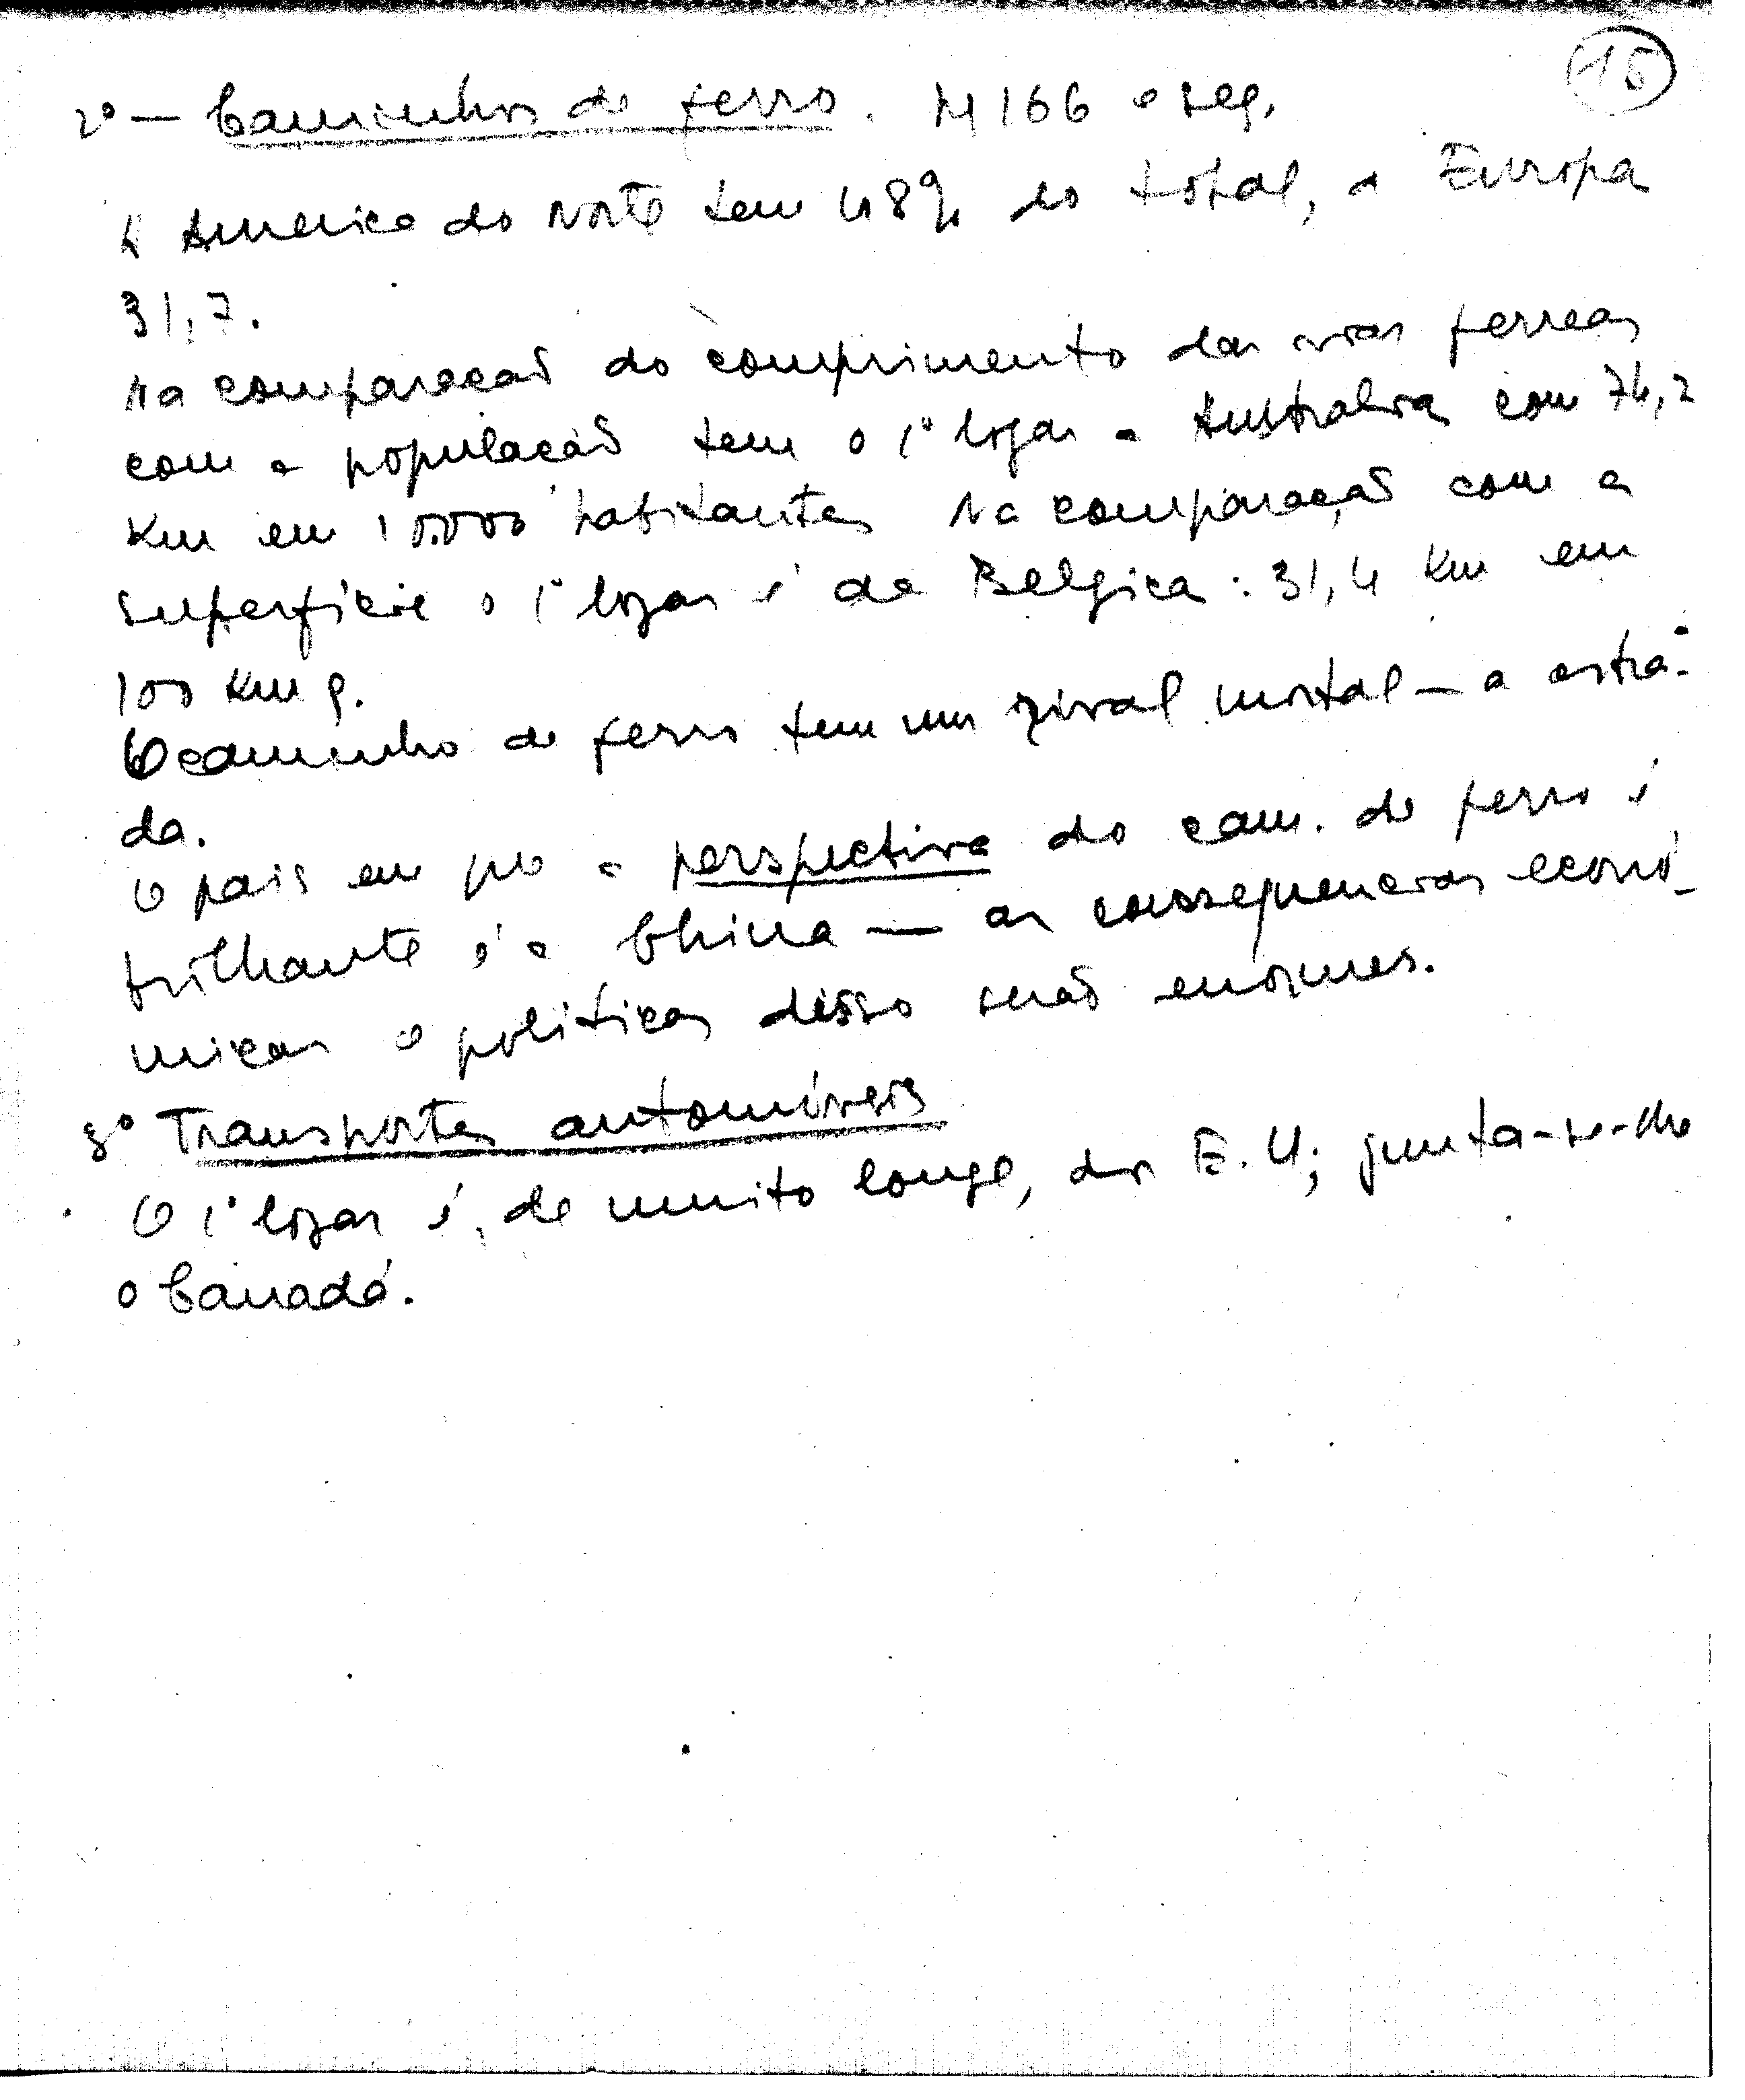 15
2º — Caminhos de ferro. M 166 e seg.
A America do Norte tem 48% do total, a Europa
31,7.
Na comparação do comprimento das vias ferreas
com a população tem o 1º logar a Australia com 74,2
Km em 10.000 habitantes Na comparação com a
superficie o 1º logar é da Belgica: 31,4 Km em
100 Km q.
O caminho de ferro tem um rival mortal — a estra-
da.
O pais em que a perspectiva do cam. de ferro é
brilhante é a China — as consequencias econó-
micas e politicas disso serão enormes.
3º Transportes automóveis
O 1º logar é, de muito longe, dos E.U; junta-se-lhe
o Canadá.